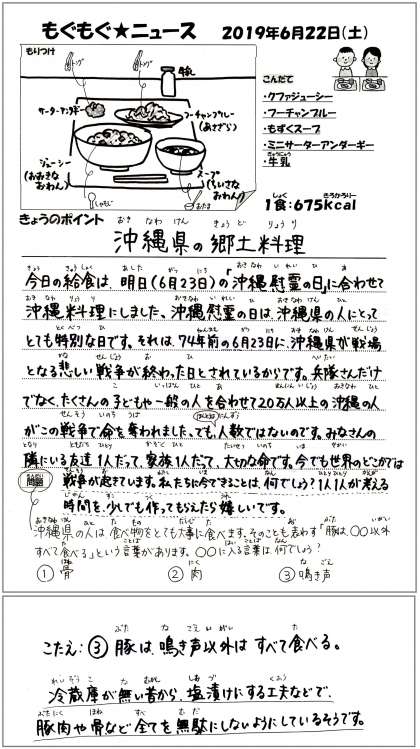 もぐもぐ★ニュース　2019年6月22日(土)
もりつけ
トング
トング
牛乳
サーターアンダギー
フーチャンプルー
(あさざら)
ジューシー
(おおきなおわん)
スープ
(ちいさなおわん)
しゃもじ
おたま
こんだて
・クファジューシー
・フーチャンプルー
・もずくスープ
・ミニサーターアンダーギー
・牛乳
1食:675kcal
きょうのポイント
沖縄県の郷土料理
今日の給食は、明日(6月23日)の「沖縄慰霊の日」に合わせて
沖縄料理にしました。沖縄慰霊の日は、沖縄県の人にとって
とても特別な日です。それは、74年前の6月23日に、沖縄県が戦場
となる悲しい戦争が終わった日とされているからです。兵隊さんだけ
でなく、たくさんの子どもや一般の人を合わせて20万人以上の沖縄の人
がこの戦争で命を奪われました。でも、人数ではないのです。みなさんの
隣にいる友達1人だって、家族1人だって、大切な命です。今でも世界のどこかでは
戦争が起きています。私たちに今できることは、何でしょう?1人1人が考える
時間を、少しでも作ってもらえたら嬉しいです。
問題
沖縄県の人は食べ物をとても大事に食べます。そのことを表わす「豚は、○○以外
すべて食べる」という言葉があります。○○に入る言葉は、何でしょう?
①骨　②肉　③鳴き声
こたえ:③豚は、鳴き声以外はすべて食べる。
冷蔵庫が無い昔から、塩漬けにする工夫などで、
豚肉や骨など全てを無駄にしないようにしているそうです。